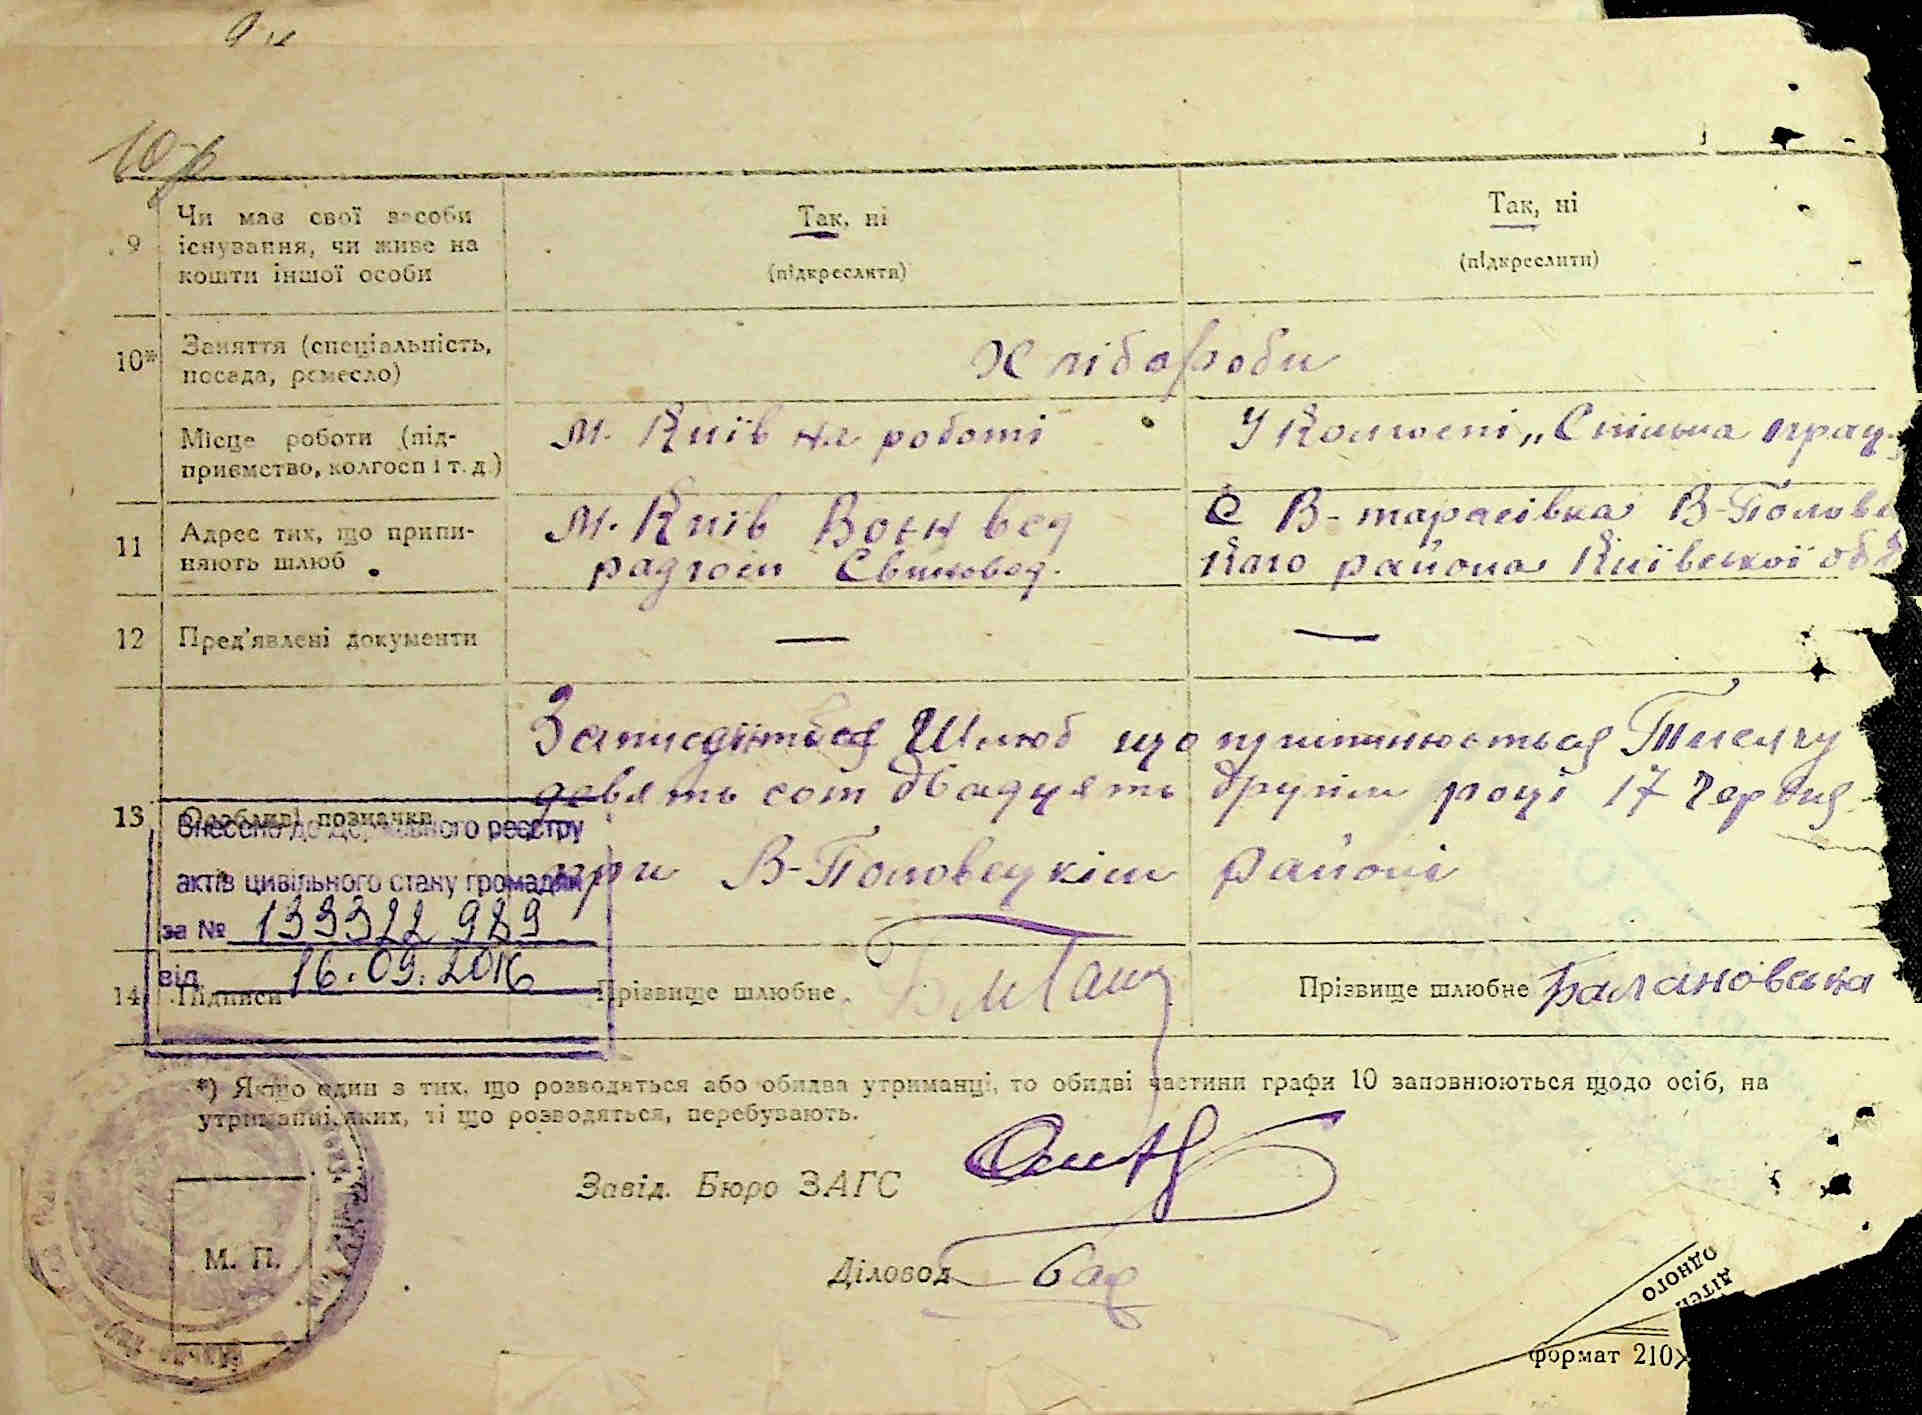 9
Чи має свої засоби
існування, чи живе на
кошти іншої особи
Так, ні
(підкреслити)
Так, ні
(підкреслити)
10*
Заняття (спеціальність,
посада, ремесло)
Хлібороби
Місце роботи (під-
приємство, колгосп і т. д.)
М. Київ на роботі
У Колгоспі „Спільна прац
11
Адрес тих, що припи-
няють шлюб
М. Київ Воєн вед
радгосп Свиновод.
С В-тарасівка В-Полове
кого района Київської обл
12
Пред'явлені документи
—
—
13
Особливі позначки
Шлюб що припинюється Тисячу
девять сот двадцять другім році 17 Червня
при В-Половецкім районі
Внесено до Державного реєстру
актів цивільного стану громадян
за № 133322989
від 16.09.2016
14
Підписи
Прізвище шлюбне
Прізвище шлюбне Балановська
*) Якщо один з тих, що розводяться або обидва утриманці, то обидві частини графи 10 заповнюються щодо осіб, на
утриманні яких, ті що розводяться, перебувають.
Завід. Бюро ЗАГС
М. П.
Діловод
дітей
одного
формат 210×